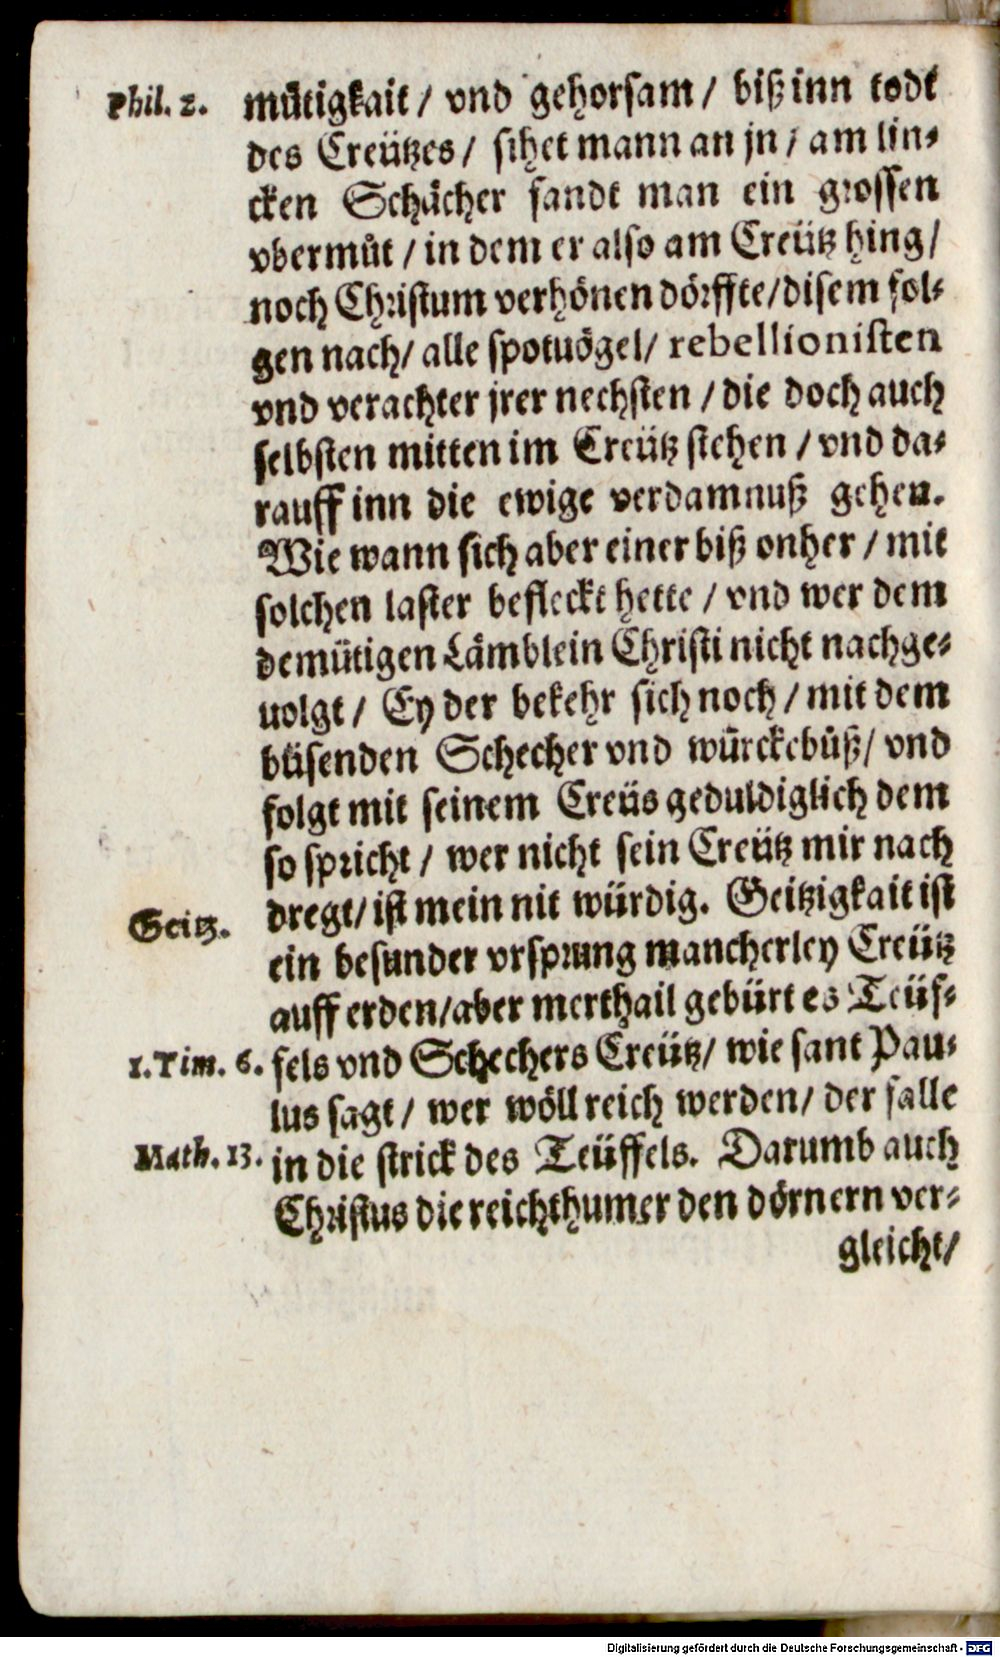 Phil. 2. mütigkait / vnd gehorsam / biß inn todt
des Creützes / sihet mann an jn / am lin-
cken Schächer fandt man ein grossen
vbermůt / in dem er also am Creütz hing /
noch Christum verhönen dörffte / disem fol-
gen nach / alle spotuögel / rebellionisten
vnd verachter jrer nechsten / die doch auch
selbsten mitten im Creütz stehen / vnd da-
rauff inn die ewige verdamnuß gehen.
Wie wann sich aber einer biß onher / mit
solchen laster befleckt hette / vnd wer dem
demütigen Lämblein Christi nicht nachge-
uolgt / Ey der bekehr sich noch / mit dem
büsenden Schecher vnd würckebůß / vnd
folgt mit seinem Creüs geduldiglich dem
so spricht / wer nicht sein Creütz mir nach
Geitz. dregt / ist mein nit würdig. Geitzigkait ist
ein besunder vrsprung mancherley Creütz
auff erden / aber merthail gebürt es Teüf-
1. Tim. 6. fels vnd Schechers Creütz / wie sant Pau-
lus sagt / wer wöll reich werden / der falle
Math. 13. in die strick des Teüffels. Darumb auch
Christus die reichthumer den dörnern ver-
gleicht /
Digitalisierung gefördert durch die Deutsche Forschungsgemeinschaft - DFG